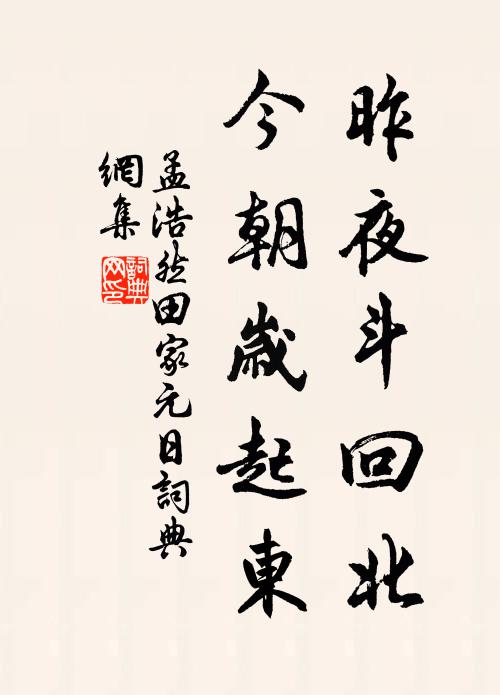 昨夜斗回北
今朝歲起東
孟浩然田家元日詞典
網集
詞典
网印